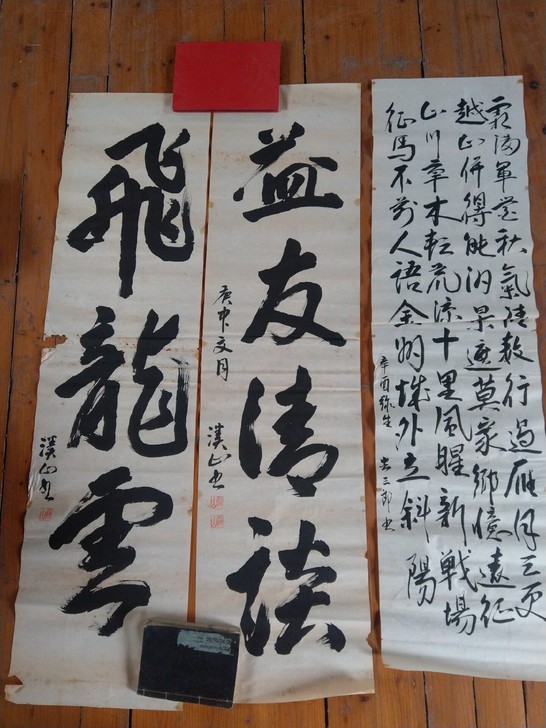 霜満軍営秋気清数行過雁月三更
越山併得能州景遮莫家郷憶遠征
山川草木転荒涼十里風腥新戦場
征馬不前人語金州城外立斜陽
辛酉弥生
益友清談
庚申文月
渓山書
飛龍雲
渓山書